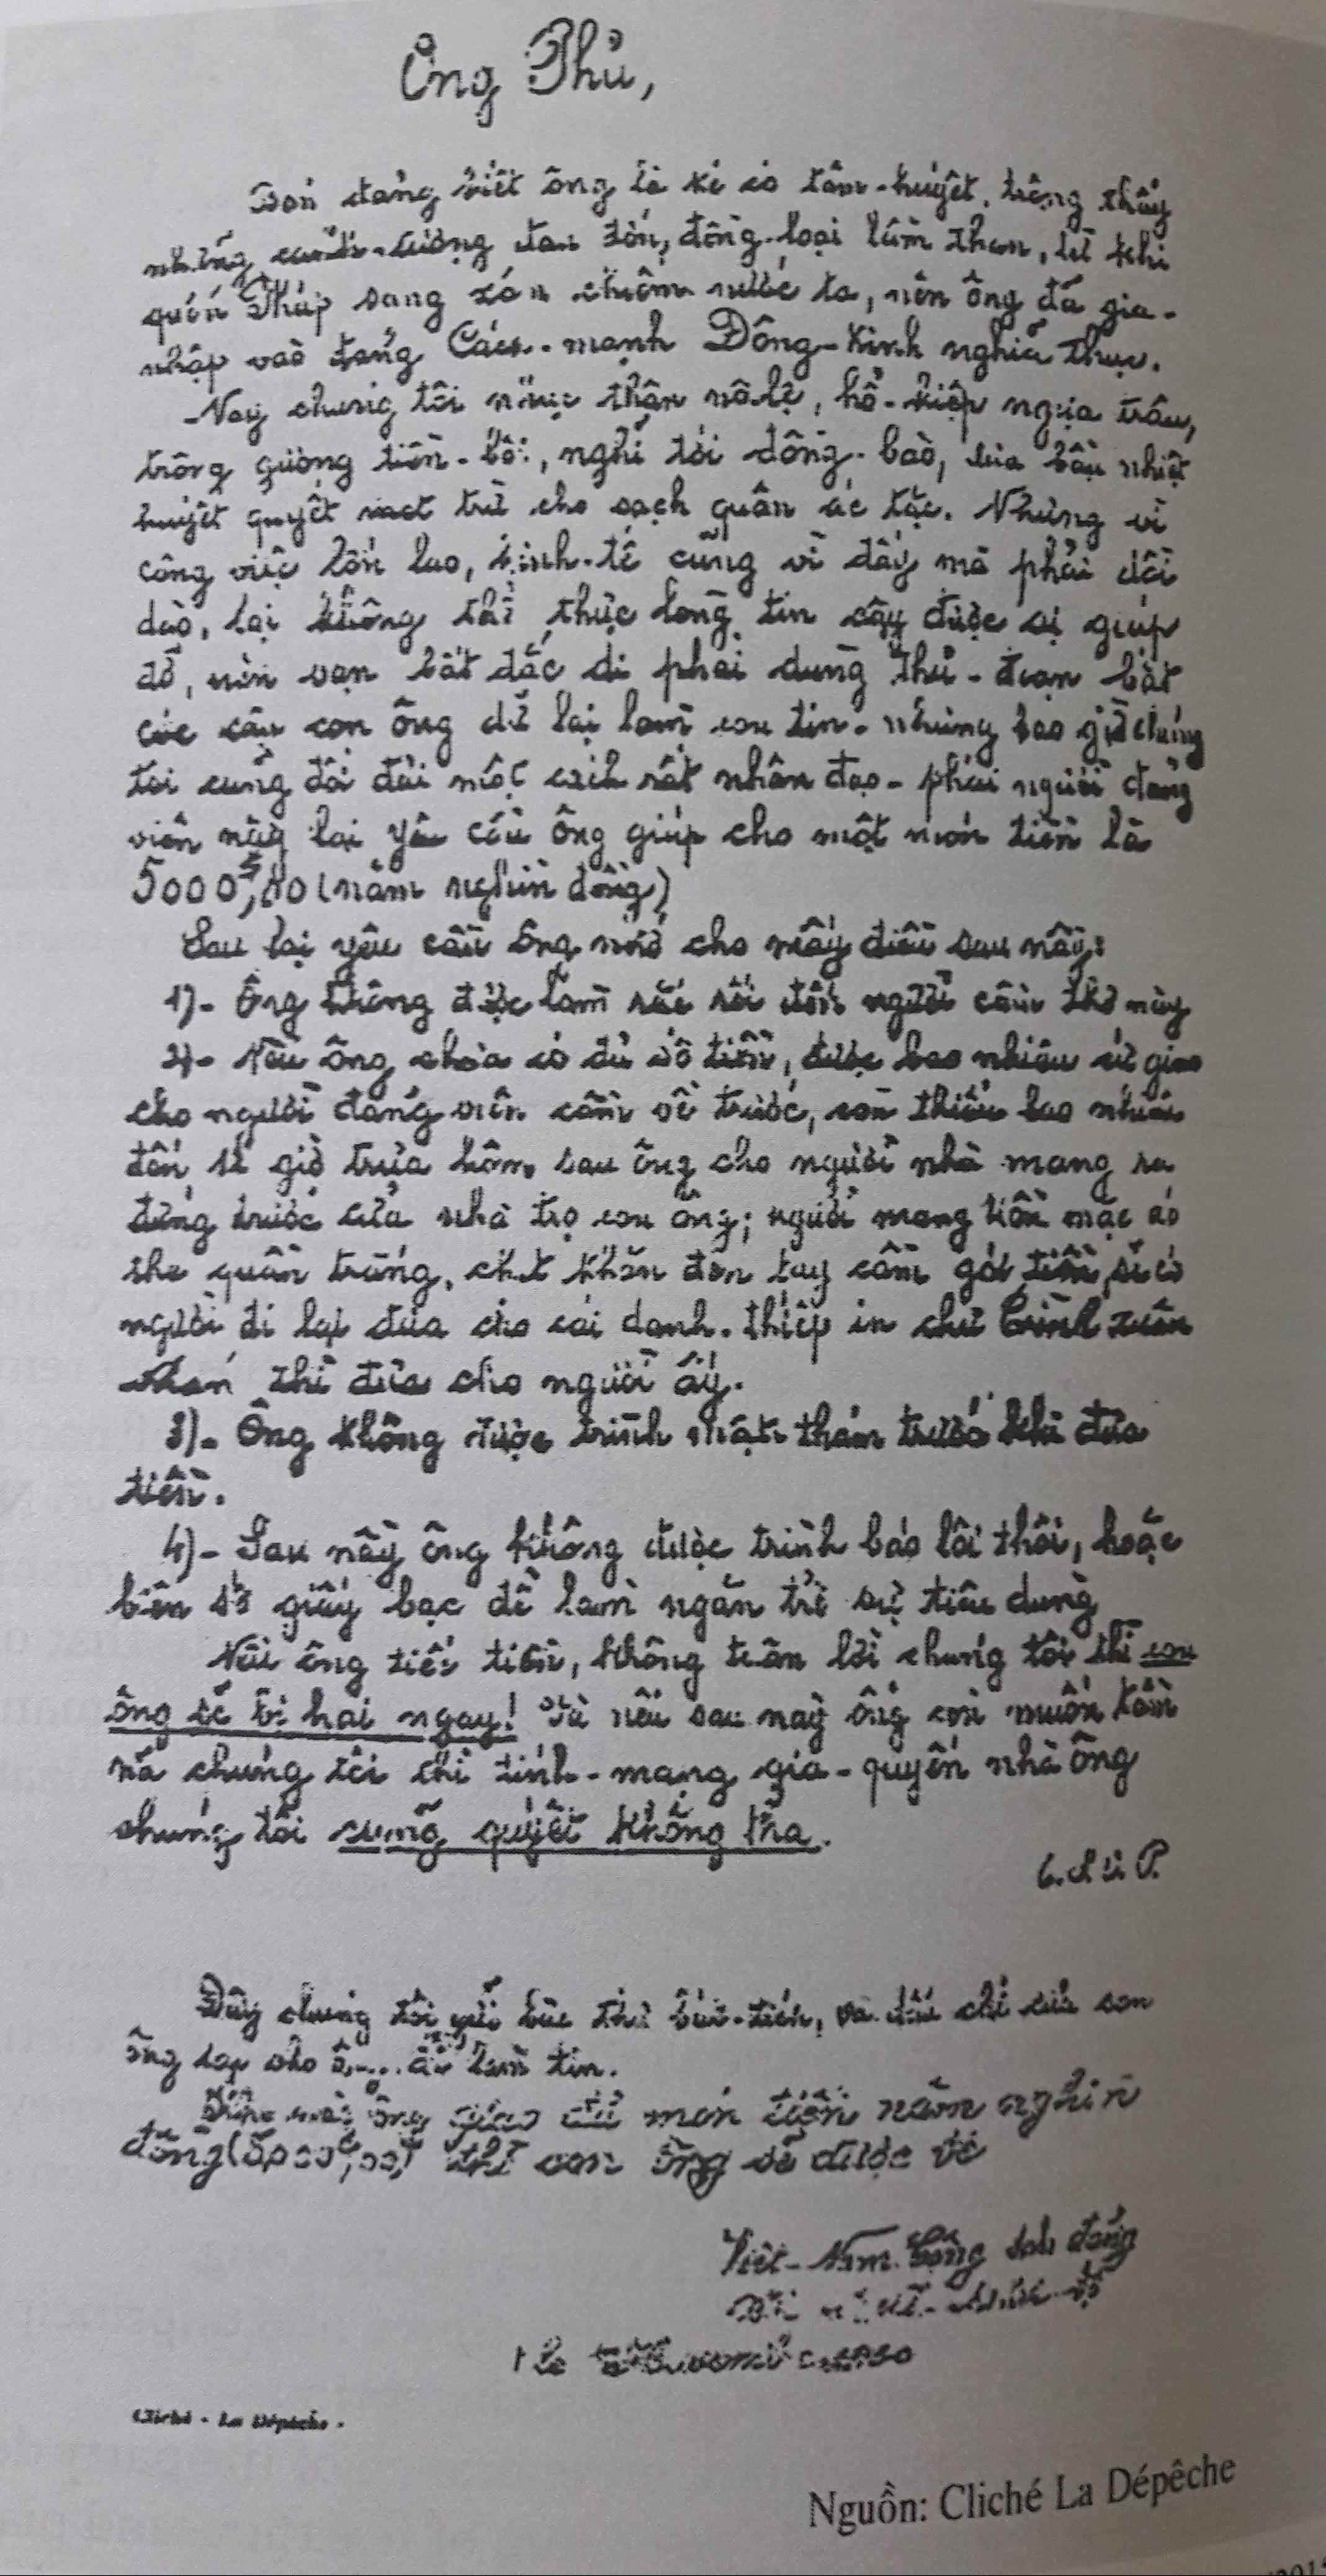 Ông Phủ,
đảng biết ông là kẻ có tâm-huyết, trông thấy
những tan tồn, đồng-loại lầm than, từ khi
quân Pháp sang xâm chiếm nước ta, nên ông đã gia-
nhập vào đảng Cách-mạnh Đông-Kinh nghĩa thục.
Nay chúng tôi thân nô-lệ, hổ-kiếp ngựa trâu,
trông gương tiền-bối, nghĩ tới đồng-bào, bầu nhiệt
huyết quyết trừ cho sạch quân ác tặc. Nhưng vì
công việc lớn lao, kinh-tế cũng vì đấy mà phải dồi
dào, lại không thể thực lòng tin cậy được sự giúp
đỡ, nên vạn bất đắc dĩ phải dùng thủ-đoạn bắt
cóc cậu con ông để lại làm con tin. nhưng bao giờ chúng
tôi cũng đối đãi một cách rất nhân đạo- phái người đảng
viên này lại yêu cầu ông giúp cho một món tiền là
5000$,00 (năm nghìn đồng)
Sau lại yêu cầu ông nhớ cho mấy điều sau nầy:
1)- Ông không được làm rắc rối đến người cầm thơ này
2)- Nếu ông chưa có đủ số tiền, được bao nhiêu cứ giao
cho người đảng viên cầm về trước, còn thiếu bao nhiêu
đến 12 giờ trưa hôm sau ông cho người nhà mang ra
đứng trước cửa nhà trọ con ông; người mang tiền mặc áo
the quần trắng, chít khăn đen tay cầm gói tiền, sẽ có
người đi lại đưa cho cái danh-thiếp in chữ Trình xuân
thì đưa cho người ấy.
3)- Ông không được trình mật thám trước khi đưa
tiền.
4)- Sau nầy ông không được trình báo lôi thôi, hoặc
biên số giấy bạc để làm ngăn trở sự tiêu dùng
Nếu ông tiếc tiền, không tuân lời chúng tôi thì con
ông sẽ bị hại ngay! Và nếu sau này ông còn muốn tầm
nã chúng tôi thì tính-mạng gia-quyến nhà ông
chúng tôi cũng quyết không tha.
Đây chúng tôi gửi bức thơ và dấu chỉ của con
ông làm tin.
ông giao đủ món tiền năm nghìn
đồng thì con ông sẽ được về
Việt-Nam đảng
Cliché - La Dépêche -
Nguồn: Cliché La Dépêche